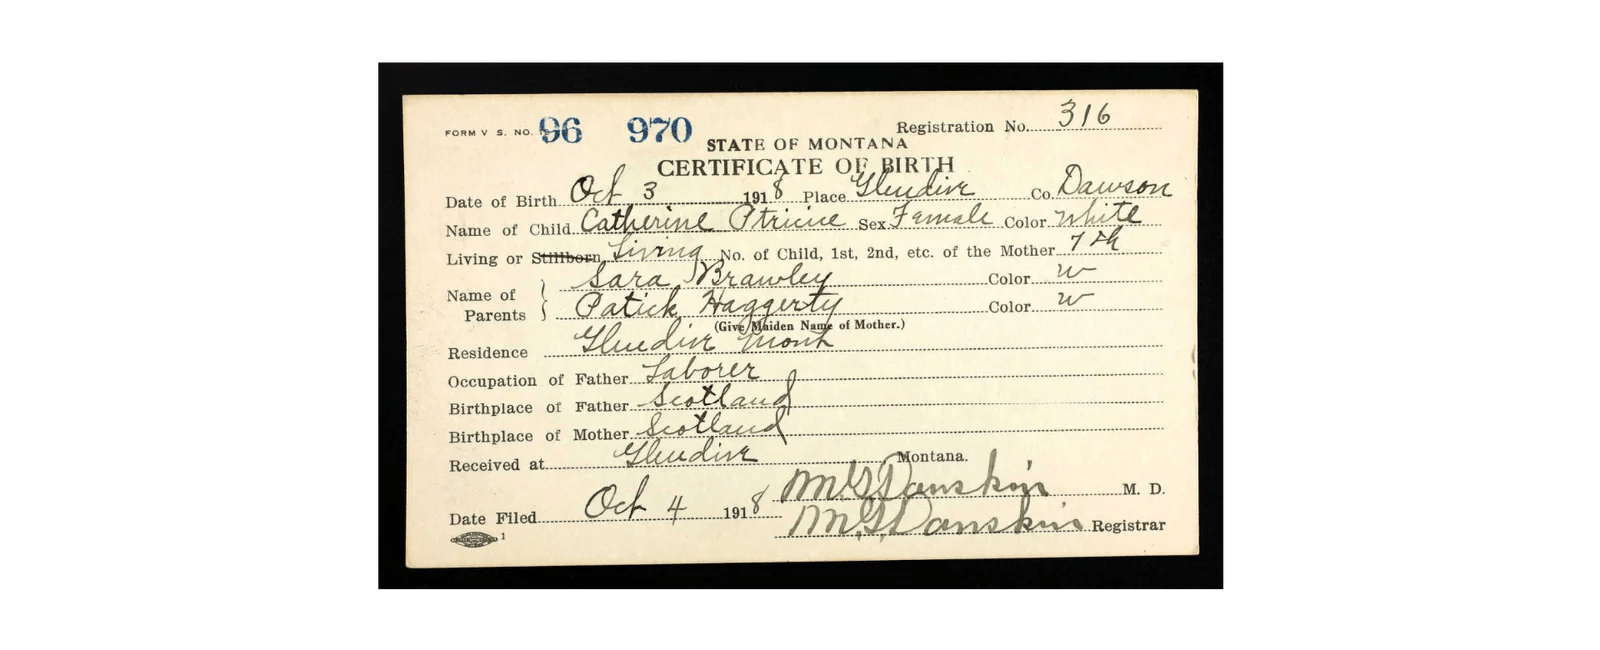 FORM V S. NO. 96 970 Registration No. 316
STATE OF MONTANA
CERTIFICATE OF BIRTH
Date of Birth Oct 3 1918 Place Glendive Co. Dawson
Name of Child Catherine Sex Female Color White
Living or Stillborn Living No. of Child, 1st, 2nd, etc. of the Mother 7th
Sara Brawley Color W
Name of Parents
Patick Haggerty Color W
(Give Maiden Name of Mother.)
Residence Glendive Mont
Occupation of Father Laborer
Birthplace of Father Scotland
Birthplace of Mother Scotland
Received at Glendive Montana.
M.G. Danskin M. D.
Date Filed Oct 4 1918
M.G. Danskin Registrar
1